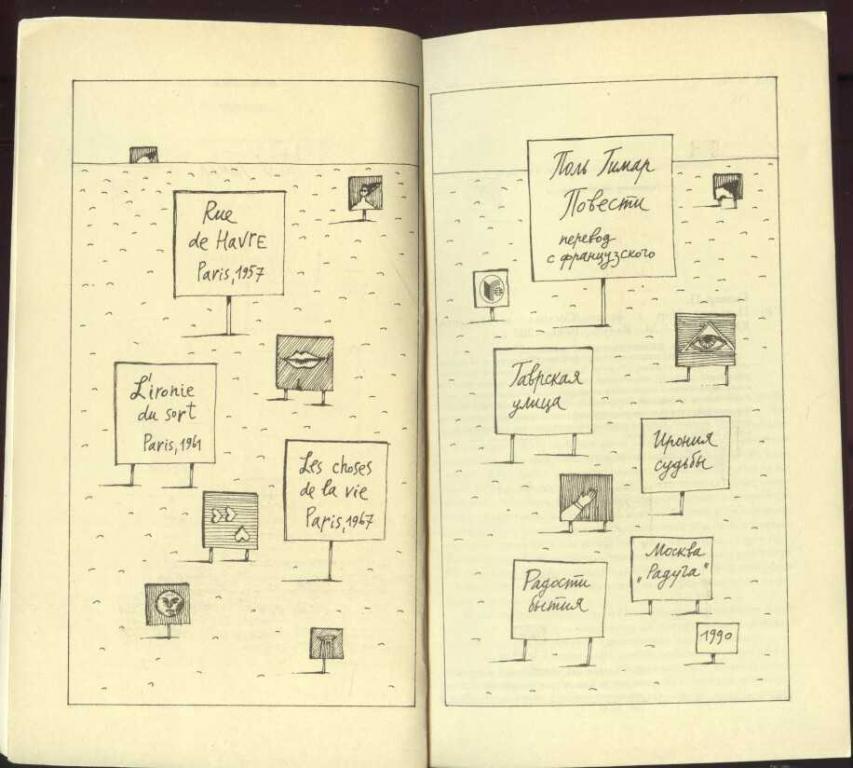 Rue
de Havre
Paris, 1957
L'ironie
du sort
Paris, 1961
Les choses
de la vie
Paris, 1967
Поль Гимар
Повести
перевод
с французского
Гаврская
улица
Ирония
судьбы
Москва
„Радуга"
Радости
бытия
1990